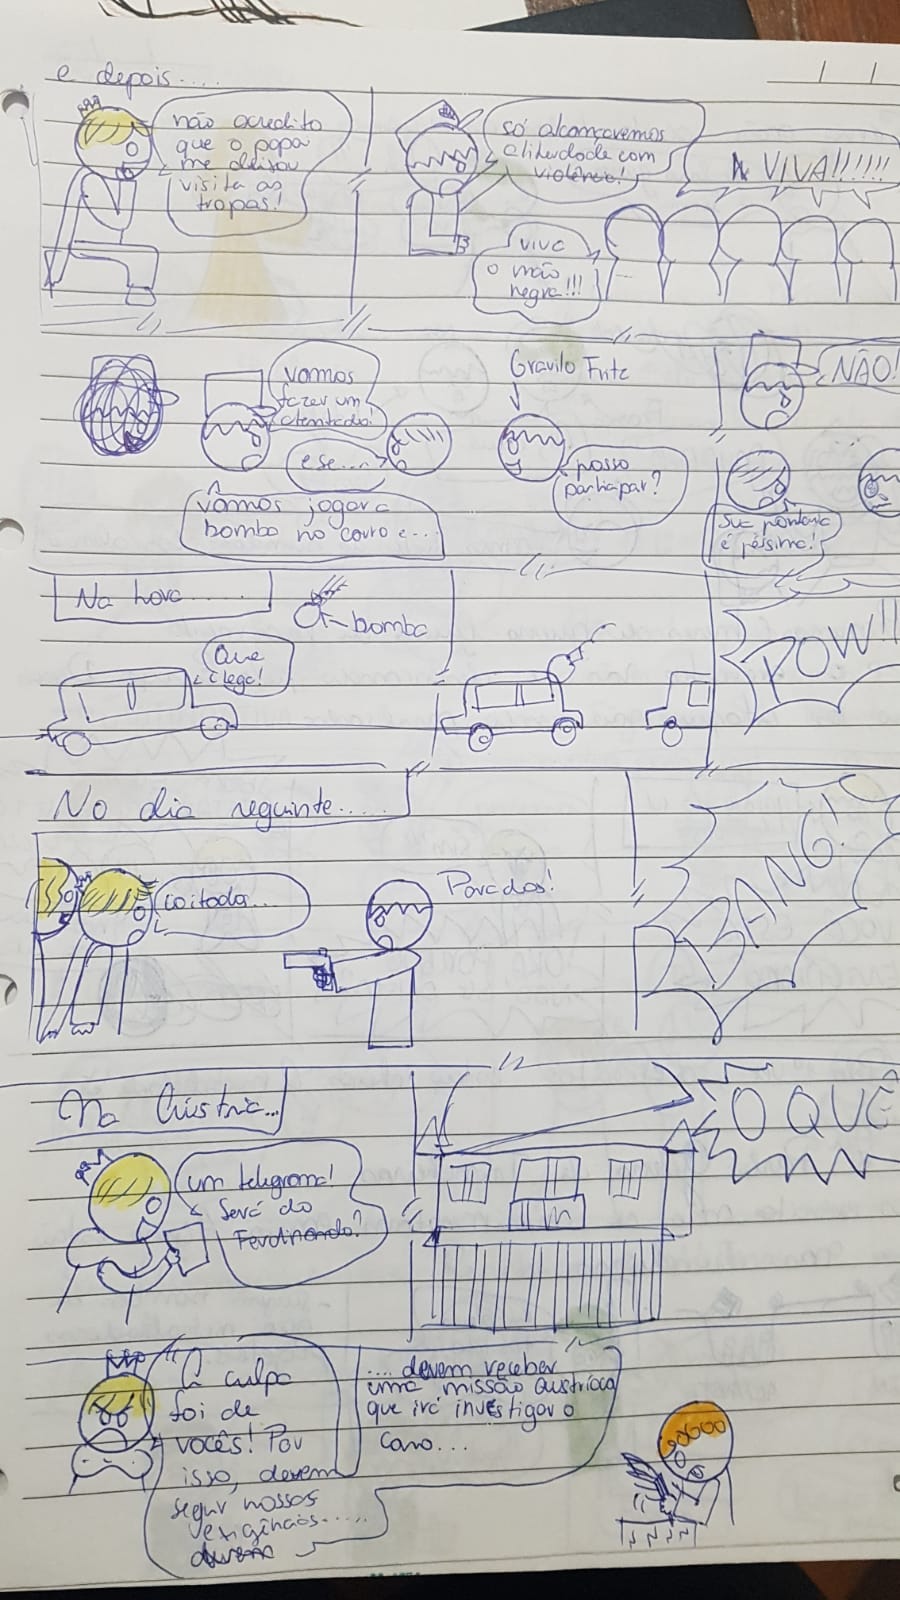 e depois....
não acredito
que o papa
me deixou
visita as
tropas!
só alcançaremos
a liberdade com
violência!
A VIVA!!!!!!
viva
a mão
negra!!!
vamos
fazer um
atentado!
e se....
vamos joga a
bomba no carro e....
Gravilo Fute
posso
participar?
NÃO!
Sua pontaria
é péssima!
Na hora......
bomba
Que
clega!
POW!!
No dia seguinte.....
coitada...
Parados!
BANG!
Na Áustria...
um telegrama!
Será do
Ferdinando?
O QUÊ
A culpa
foi de
vocês! Por
isso, devem
seguir nossas
exigências.....
.... devem receber
uma missão austríaca
que irá investigar o
caso...